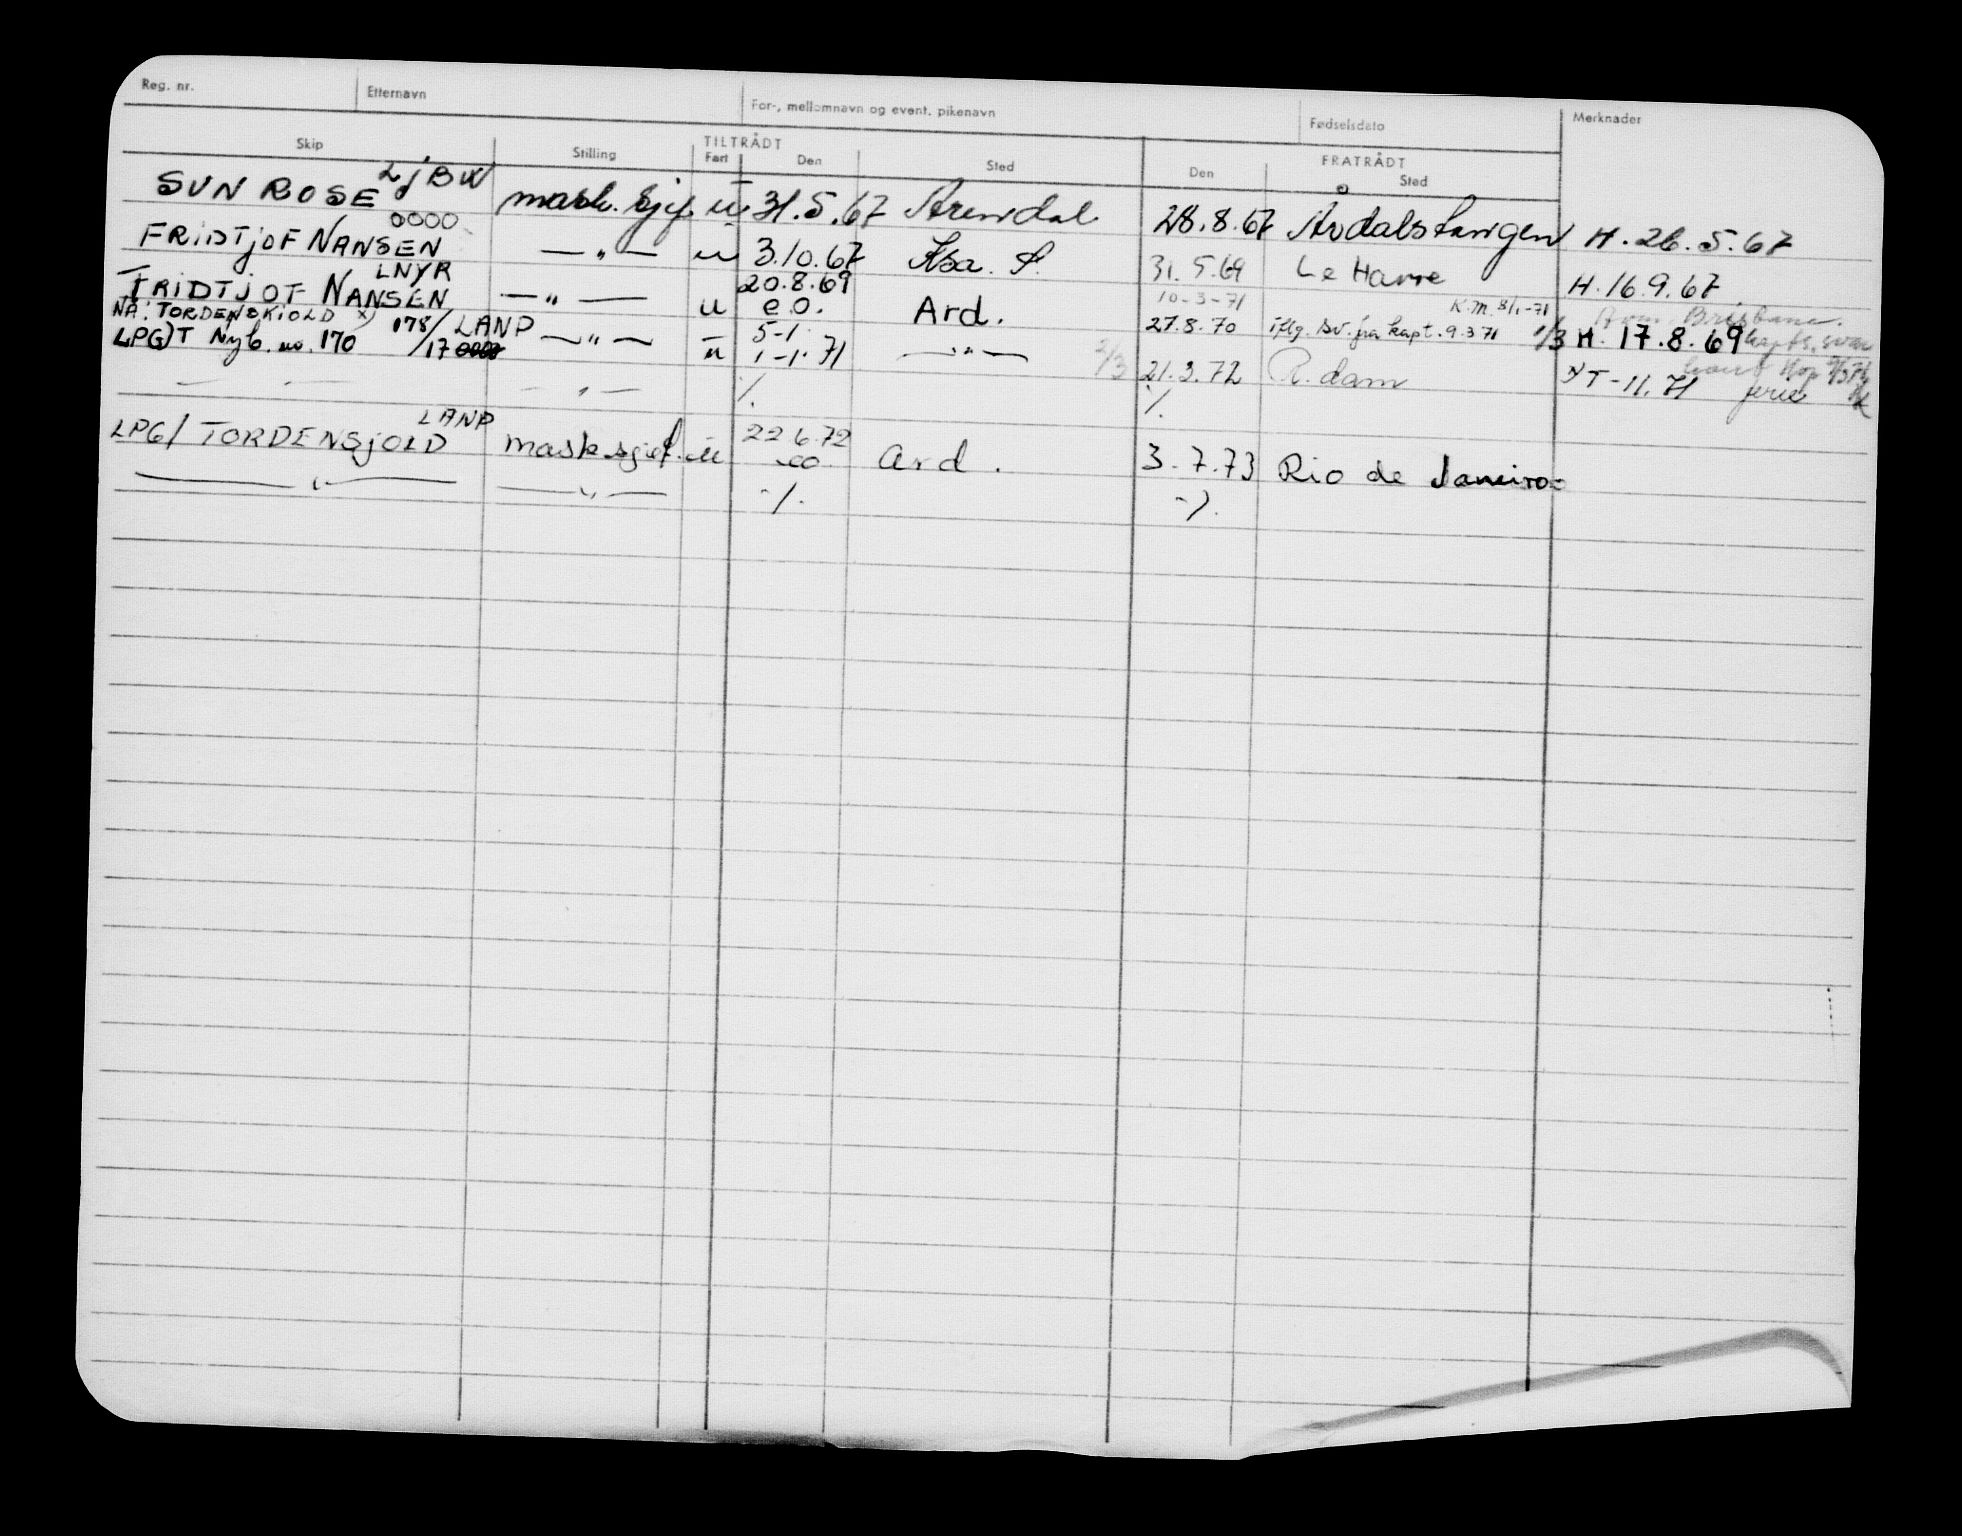 Reg. nr. Etternavn For-, mellomnavn og event. pikenavn Fødselsdato Merknader
TILTRÅDT FRATRÅDT
Skip Stilling Fart Den Sted Den Sted
LJBW
SUN ROSE mask. sjef. u 31.5.67 Arendal 28.8.67 Årdalstangen H. 26.5.67
0000
FRIDTJOF NANSEN —"— u 3.10.67 31.5.69 Le Havre H. 16.9.67
LNYR 20.8.69 10-3-71 K.M. 8/1-71 Brisbane.
FRIDTJOF NANSEN —"— u e.o. Ard. 27.8.70 iflg. sv. fra kapt. 9.3.71 1/3 H. 17.8.69
NÅ: TORDENSKIOLD x) 178/ LANP 5-1
LPG/T Nyb. no. 170 /17 0000 —"— u 1-1-71 —"— 2/3 21.3.72 R.dam x) T-11.71 ferie
— — —"— ./. ./.
LANP
LPG/ TORDENSJOLD mask.sjef. u 22.6.72 eo. Ard. 3.7.73 Rio de Janeiro
—"— —"— -/. -/.